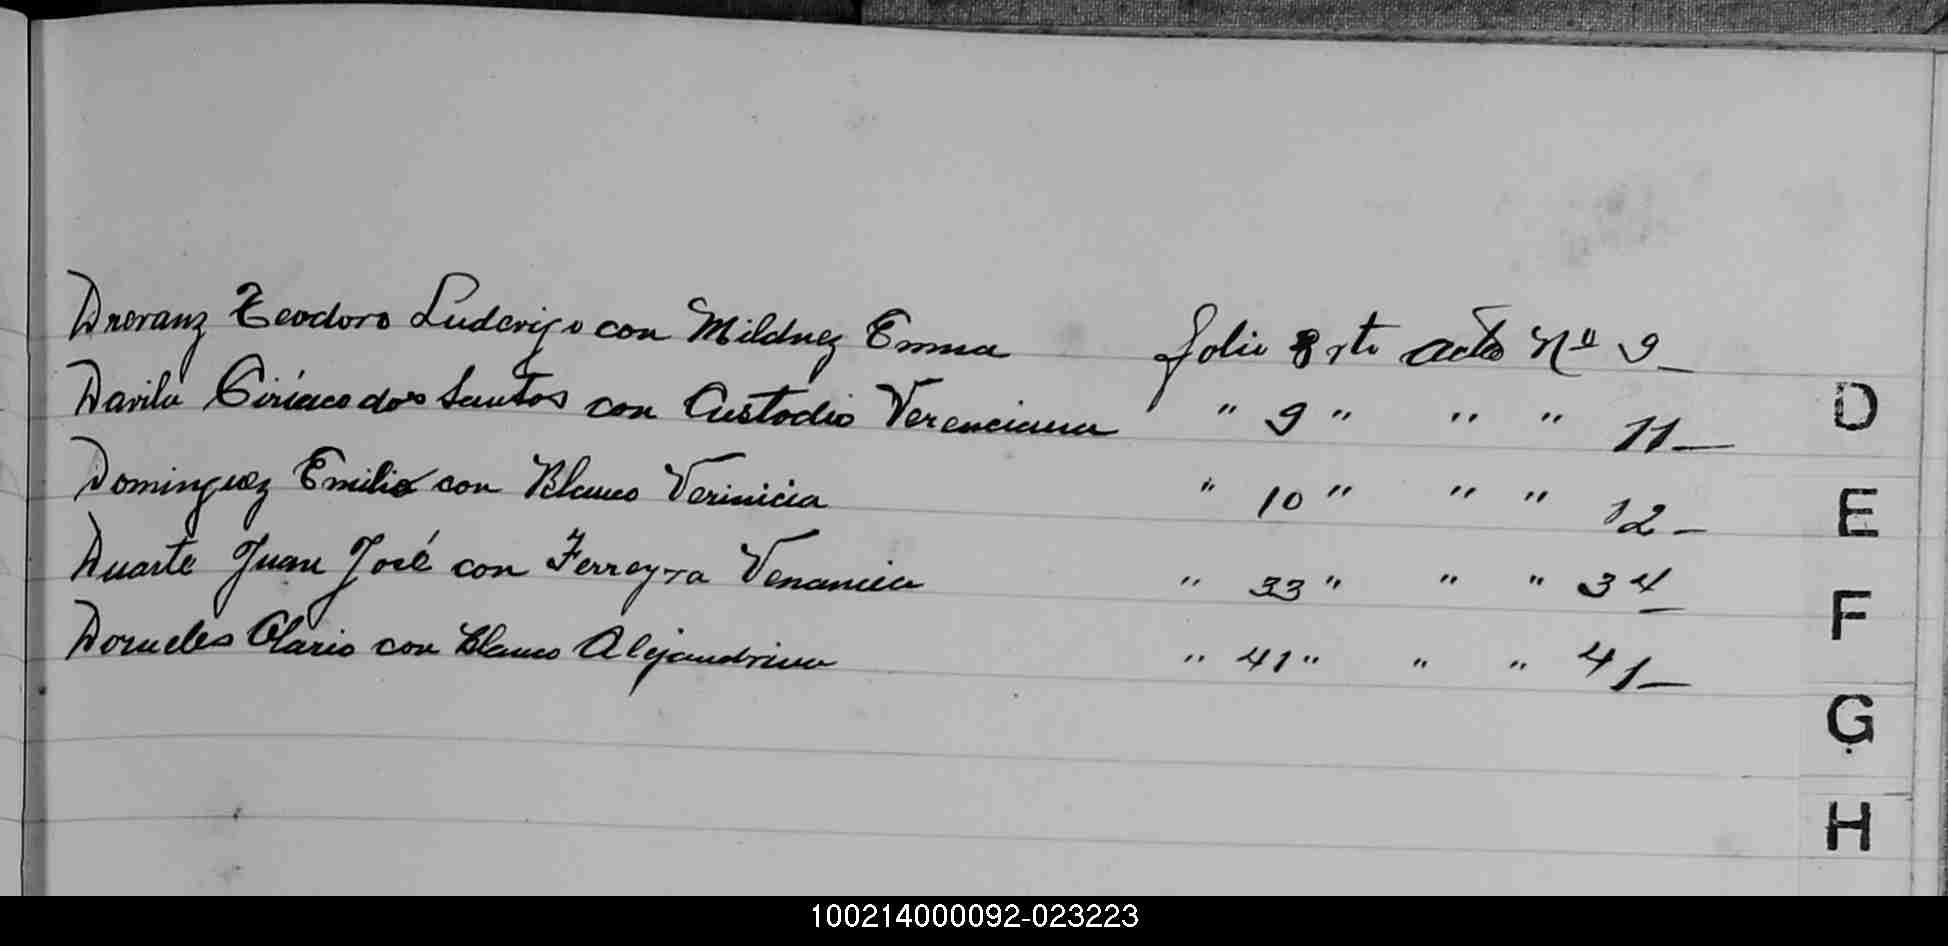 Dreranz Teodoro Luderigo con Mildnez Emma folio 8 vto acta Nº 9
Davila Ciriaco dos Santos con Custodio Verenciana " 9 " " " 11
Dominguez Emilio con Blanco Verinicia " 10 " " " 12
Duarte Juan José con Ferreyra Venancia " 33 " " " 34
Dorneles Olario con Blanco Alejandrina " 41 " " " 41
D
E
F
G
H
100214000092-023223